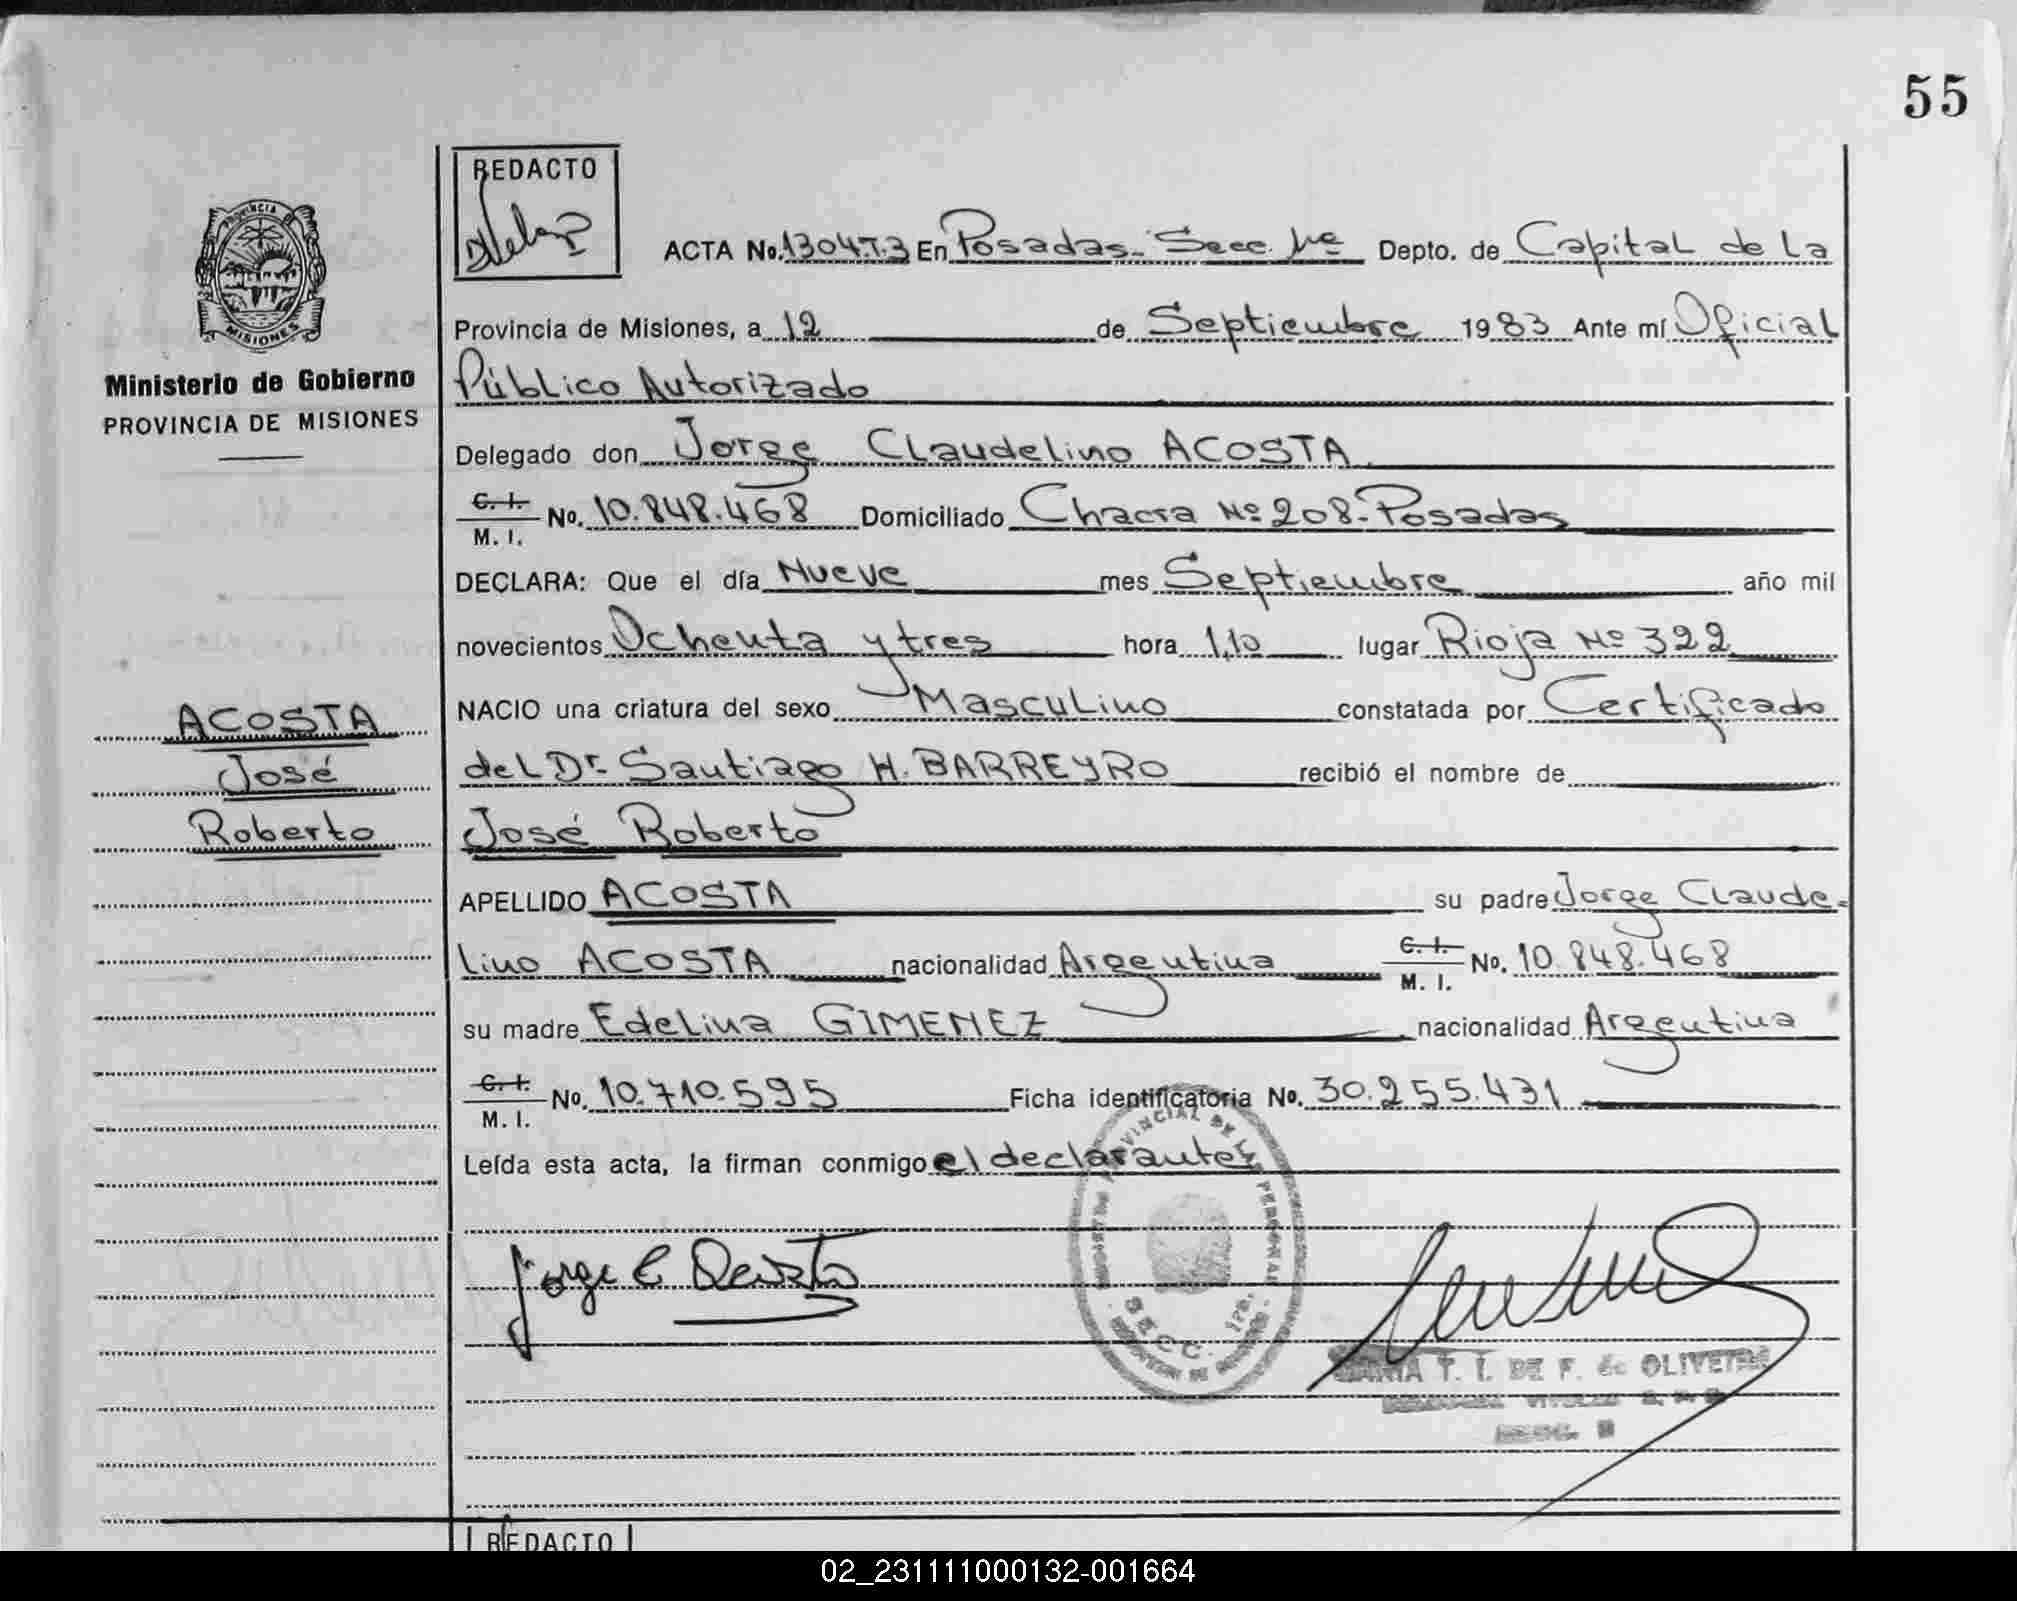 55
REDACTO
ACTA No. 1304.T.3 En Posadas- Secc. 1ra Depto. de Capital de la
Provincia de Misiones, a 12 de Septiembre 1983 Ante mí Oficial
PROVINCIA DE
MISIONES
Ministerio de Gobierno
PROVINCIA DE MISIONES
Público Autorizado
Delegado don Jorge Claudelino ACOSTA
C. I. M. I. No. 10.848.468 Domiciliado Chacra Nº 208-Posadas
DECLARA: Que el día Nueve mes Septiembre año mil
novecientos Ochenta y tres hora 1,10 lugar Rioja Nº 322
NACIO una criatura del sexo Masculino constatada por Certificado
del Dr. Santiago H. BARREYRO recibió el nombre de
José Roberto
ACOSTA
José
Roberto
APELLIDO ACOSTA su padre Jorge Claude-
lino ACOSTA nacionalidad Argentina C. I. M. I. No. 10.848.468
su madre Edelina GIMENEZ nacionalidad Argentina
C. I. M. I. No. 10.710.595 Ficha identificatoria No. 30.255.431
Leída esta acta, la firman conmigo el declarante
Jorge C Acosta
PROVINCIAL DE LAS PERSONAS
SECC. 1ra.
MARIA T. I. DE F. de OLIVEIRA
REDACTO
02_231111000132-001664